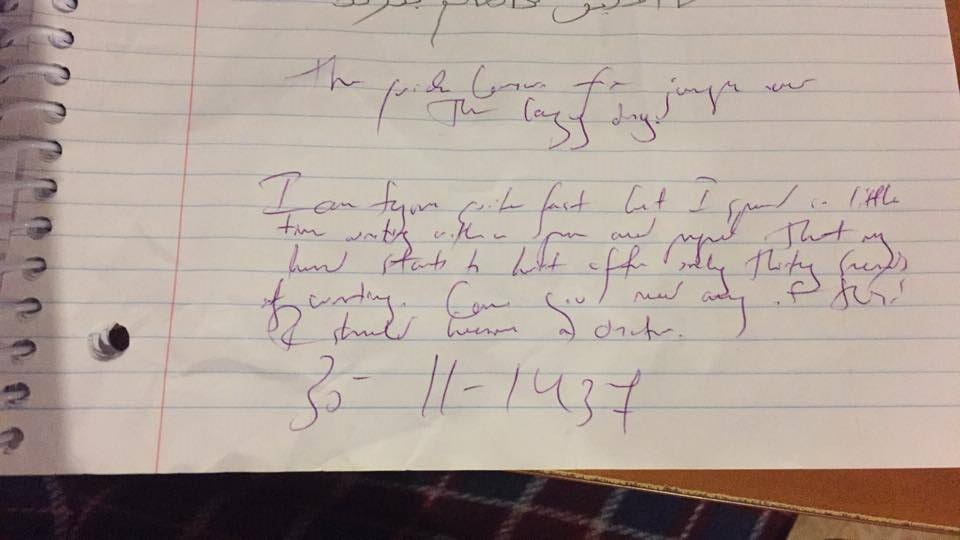 The quick brown fox jumps over
The lazy dog.
I can type quite fast but I spend so little
time writing with a pen and paper that my
hand starts to hurt after only thirty seconds
of writing. Can you read any of this?
I should become a doctor.
30-11-1437